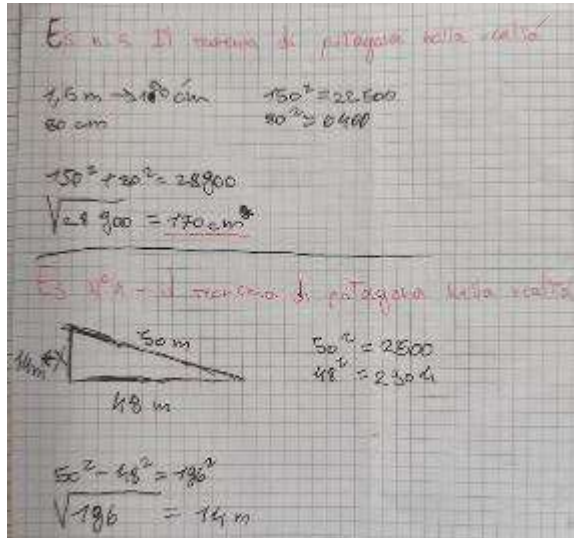 Es n. 5 Il teorema di pitagora nella realtà
1,5 m → 150 cm 150² = 22500
80 cm 80² = 6400
150² + 80² = 28900
√28900 = 170 cm
Es N°1 - il teorema di pitagora nella realtà
50 m 50² = 2500
14m 48² = 2304
48 m
50² - 48² = 196²
√196 = 14 m